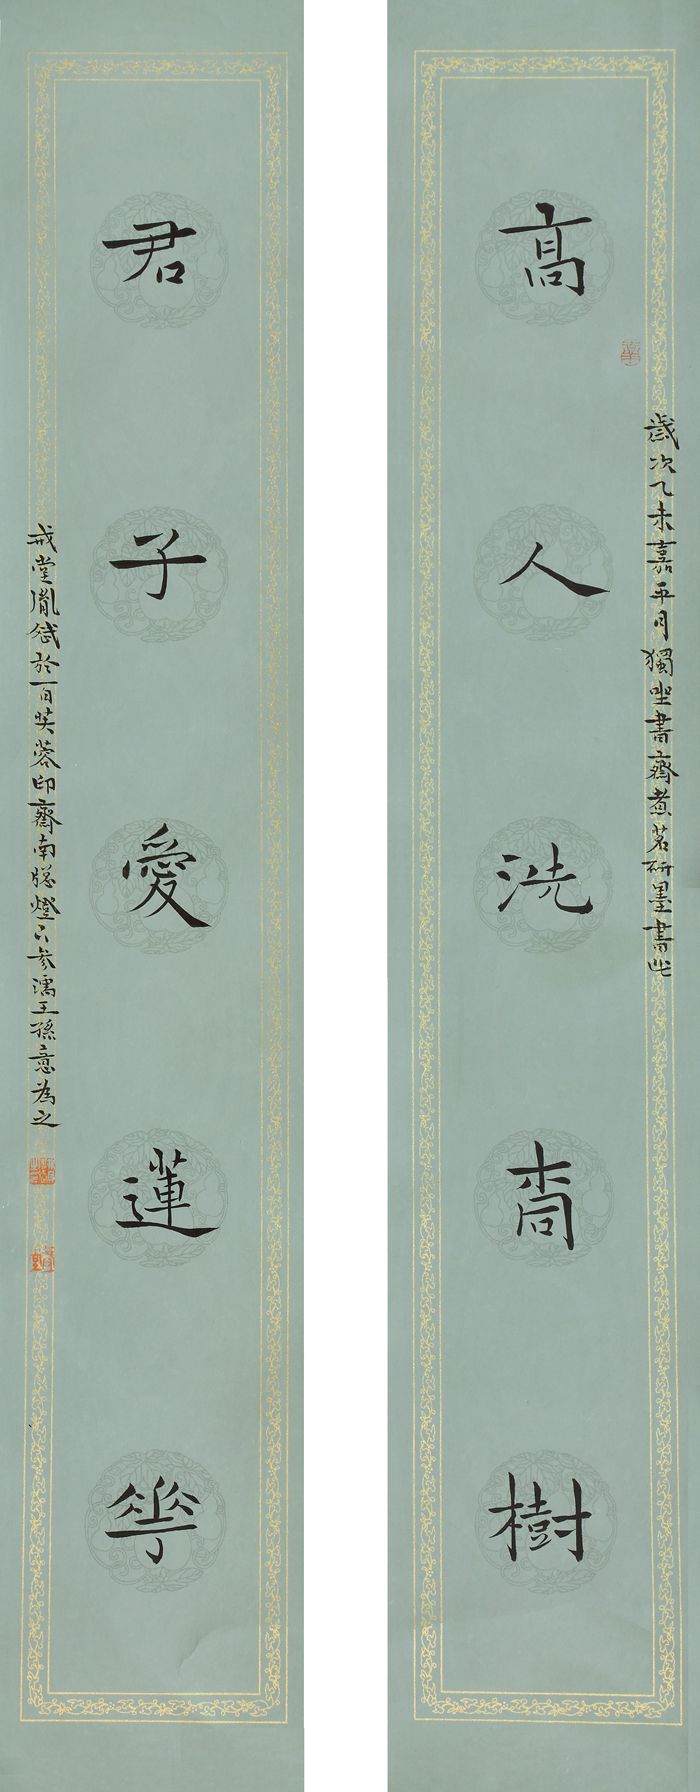 高人洗桐樹
歲次乙未嘉平月獨坐書齋煮茗研墨書此
君子愛蓮華
戒堂胤斌於百芙蓉印齋南牕燈下參濡王孫意為之